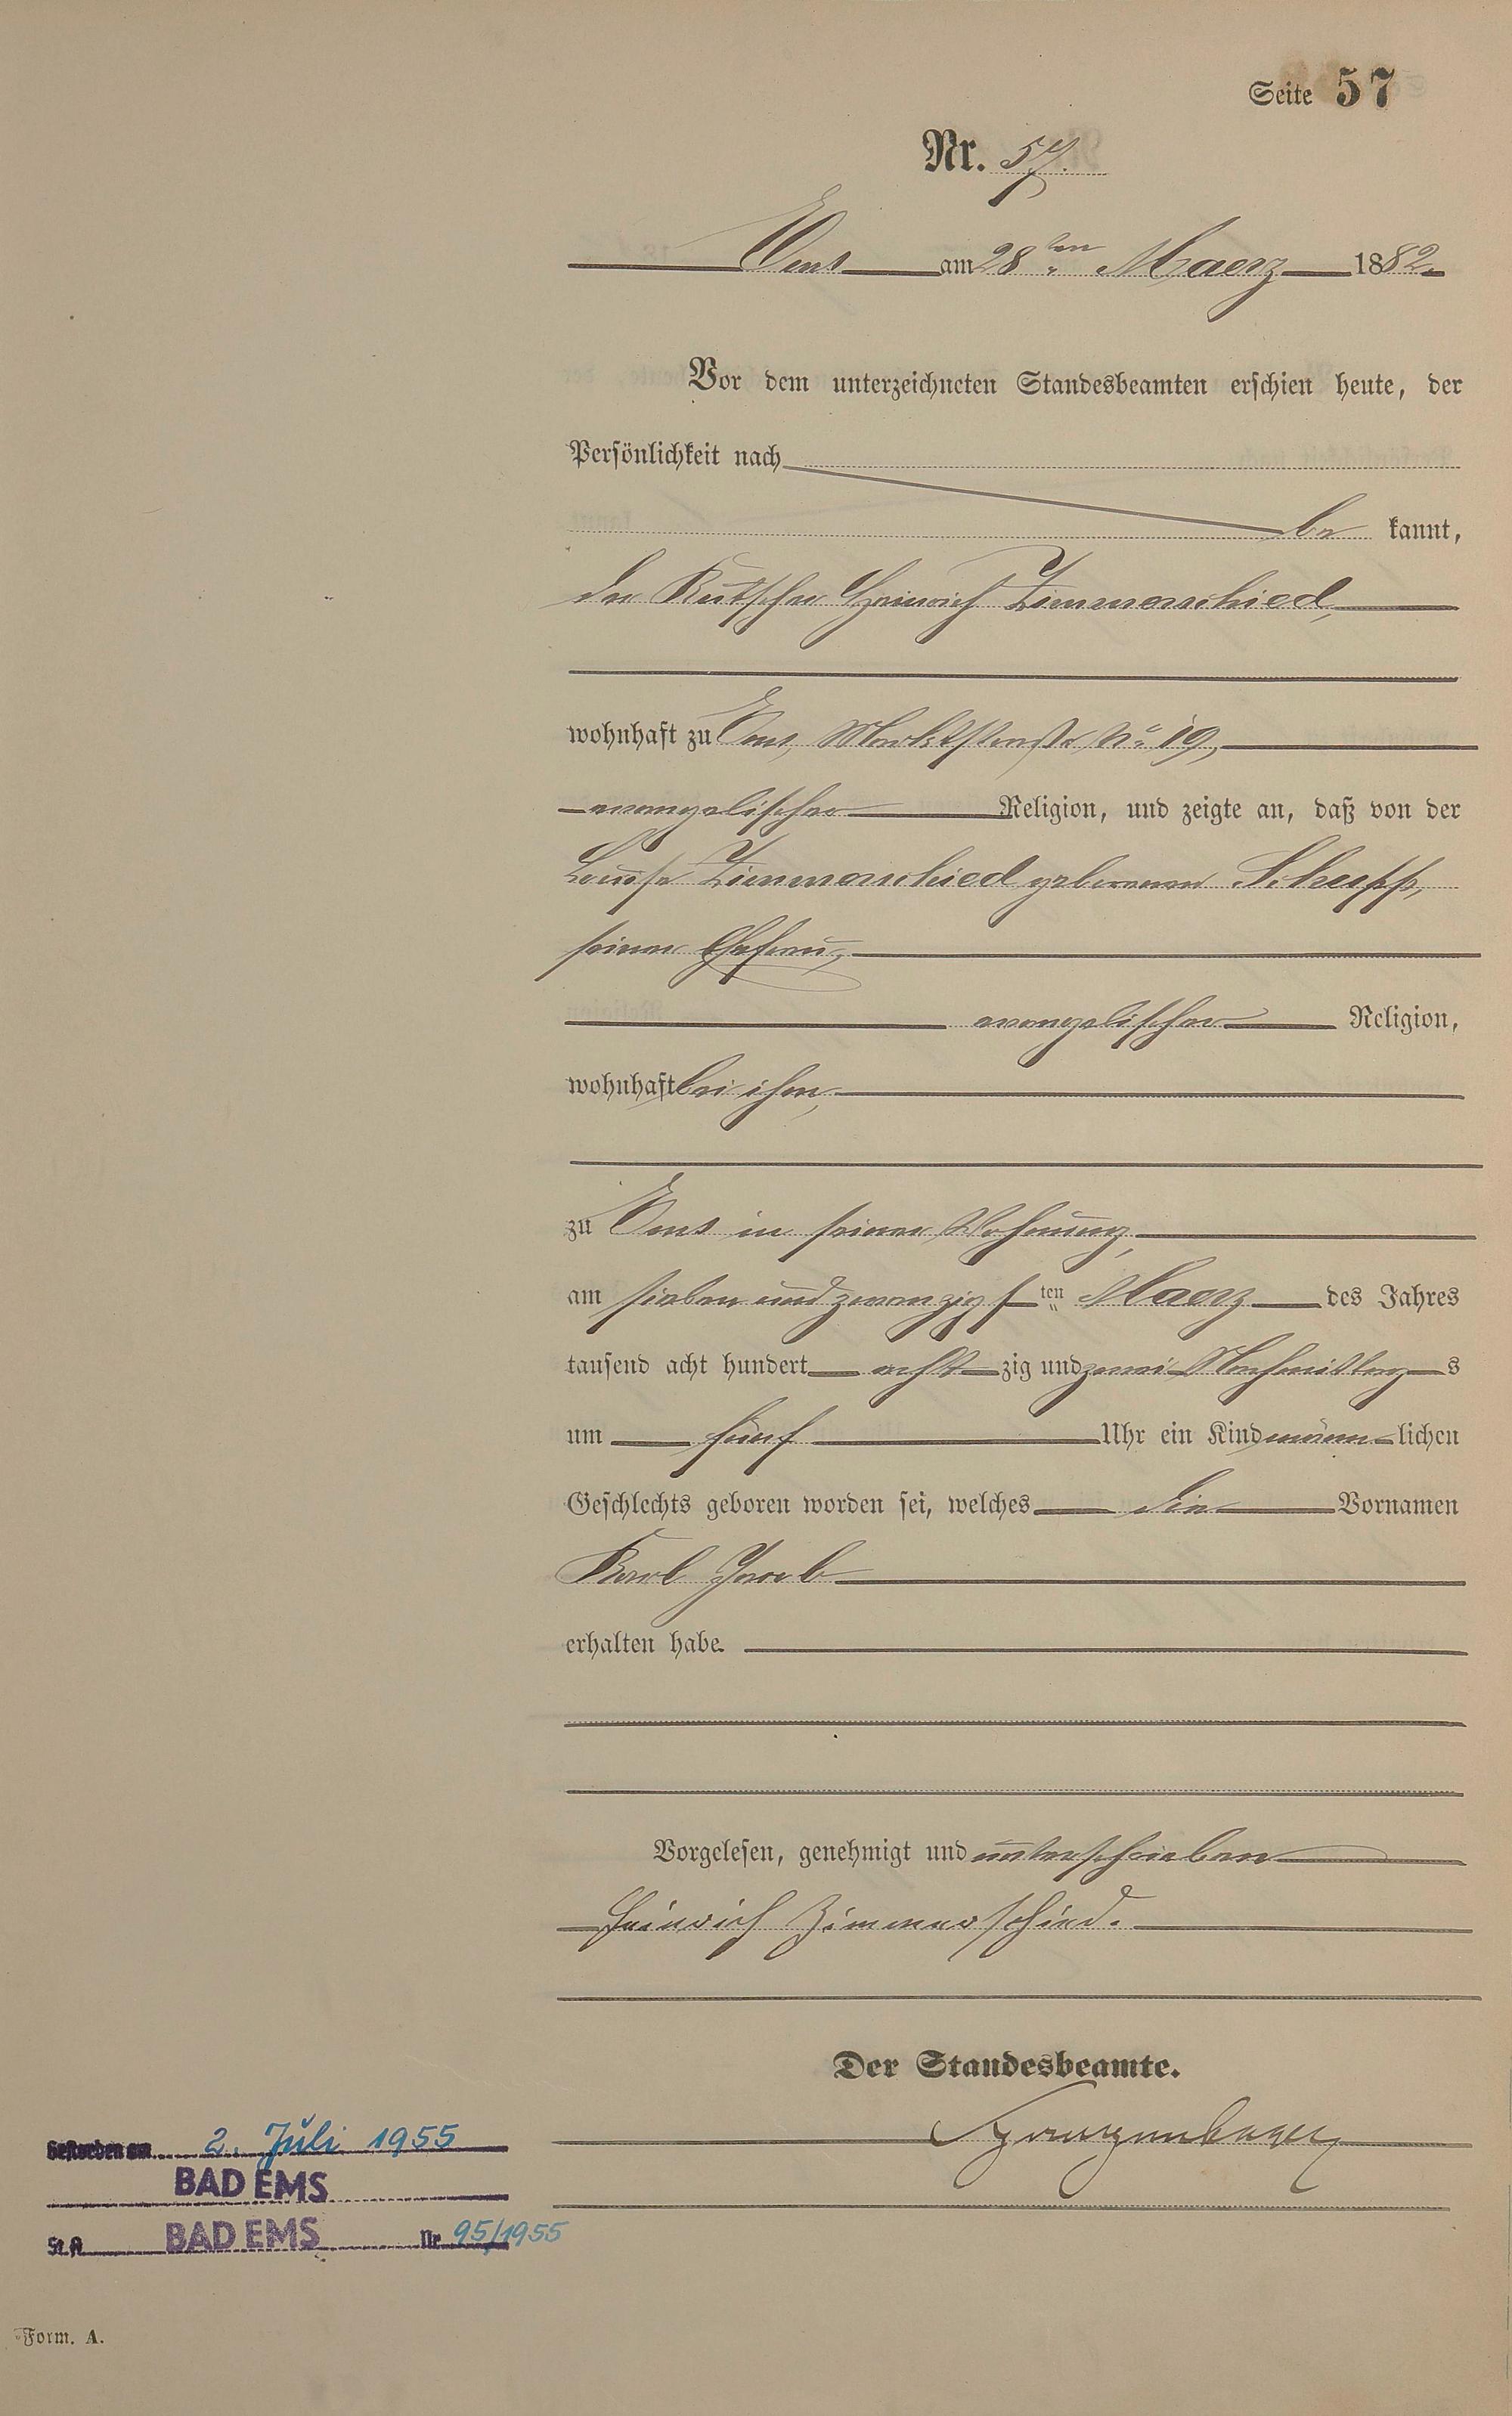 Seite 57
Nr. 57.
Ems am 28ten Maerz 1882.
Vor dem unterzeichneten Standesbeamten erschien heute, der
Persönlichkeit nach
be kannt,
der Kutscher Heinrich Zimmerschied,
wohnhaft zu Ems, Marktstraße No 19,
evangelischer Religion, und zeigte an, daß von der
Louise Zimmerschied geborenen Schupp,
seiner Ehefrau,
evangelischer Religion,
wohnhaft bei ihm,
zu Ems in seiner Wohnung,
am sieben und zwanzigsten Maerz des Jahres
tausend acht hundert acht zig und zwei Nachmittags
um fünf Uhr ein Kind männlichen
Geschlechts geboren worden sei, welches die Vornamen
Karl Jacob
erhalten habe.
Vorgelesen, genehmigt und unterschrieben
Heinrich Zimmerschied.
Der Standesbeamte.
Gestorben am 2. Juli 1955
BAD EMS
St.A. BAD EMS Nr. 95/1955
Form. A.